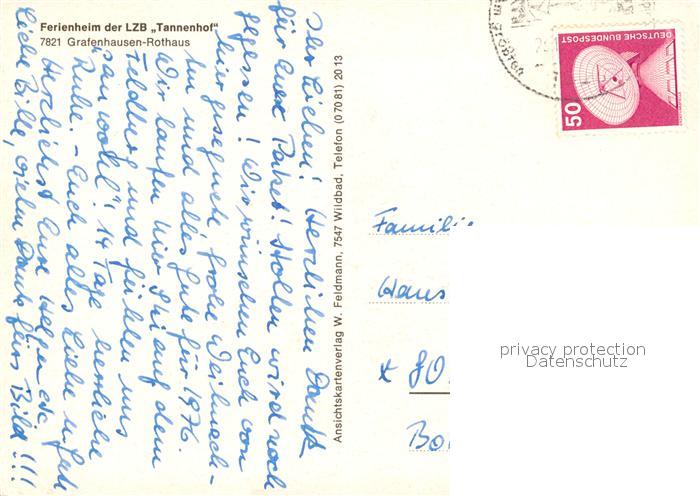 Ferienheim der LZB „Tannenhof"
7821 Grafenhausen-Rothaus
Ihr Lieben! Herzlichen Dank
für Euer Paket! Stollen wird noch
gegessen! Wir wünschen Euch von
hier gesegnete, frohe Weihnach-
ten und alles Gute für 1976.
Wir laufen hier Ski auf dem
Feldberg und fühlen uns
"sauwohl"! 14 Tage herrliche
Ruhe. - Euch alles Liebe u. Gute
Herzlichst Eure
Liebe Bille, vielen Dank fürs Bild!!!
Ansichtskartenverlag W. Feldmann, 7547 Wildbad, Telefon (0 70 81) 20 13
DEUTSCHE BUNDESPOST
50
Famili
Hans
80
privacy protection
Datenschutz